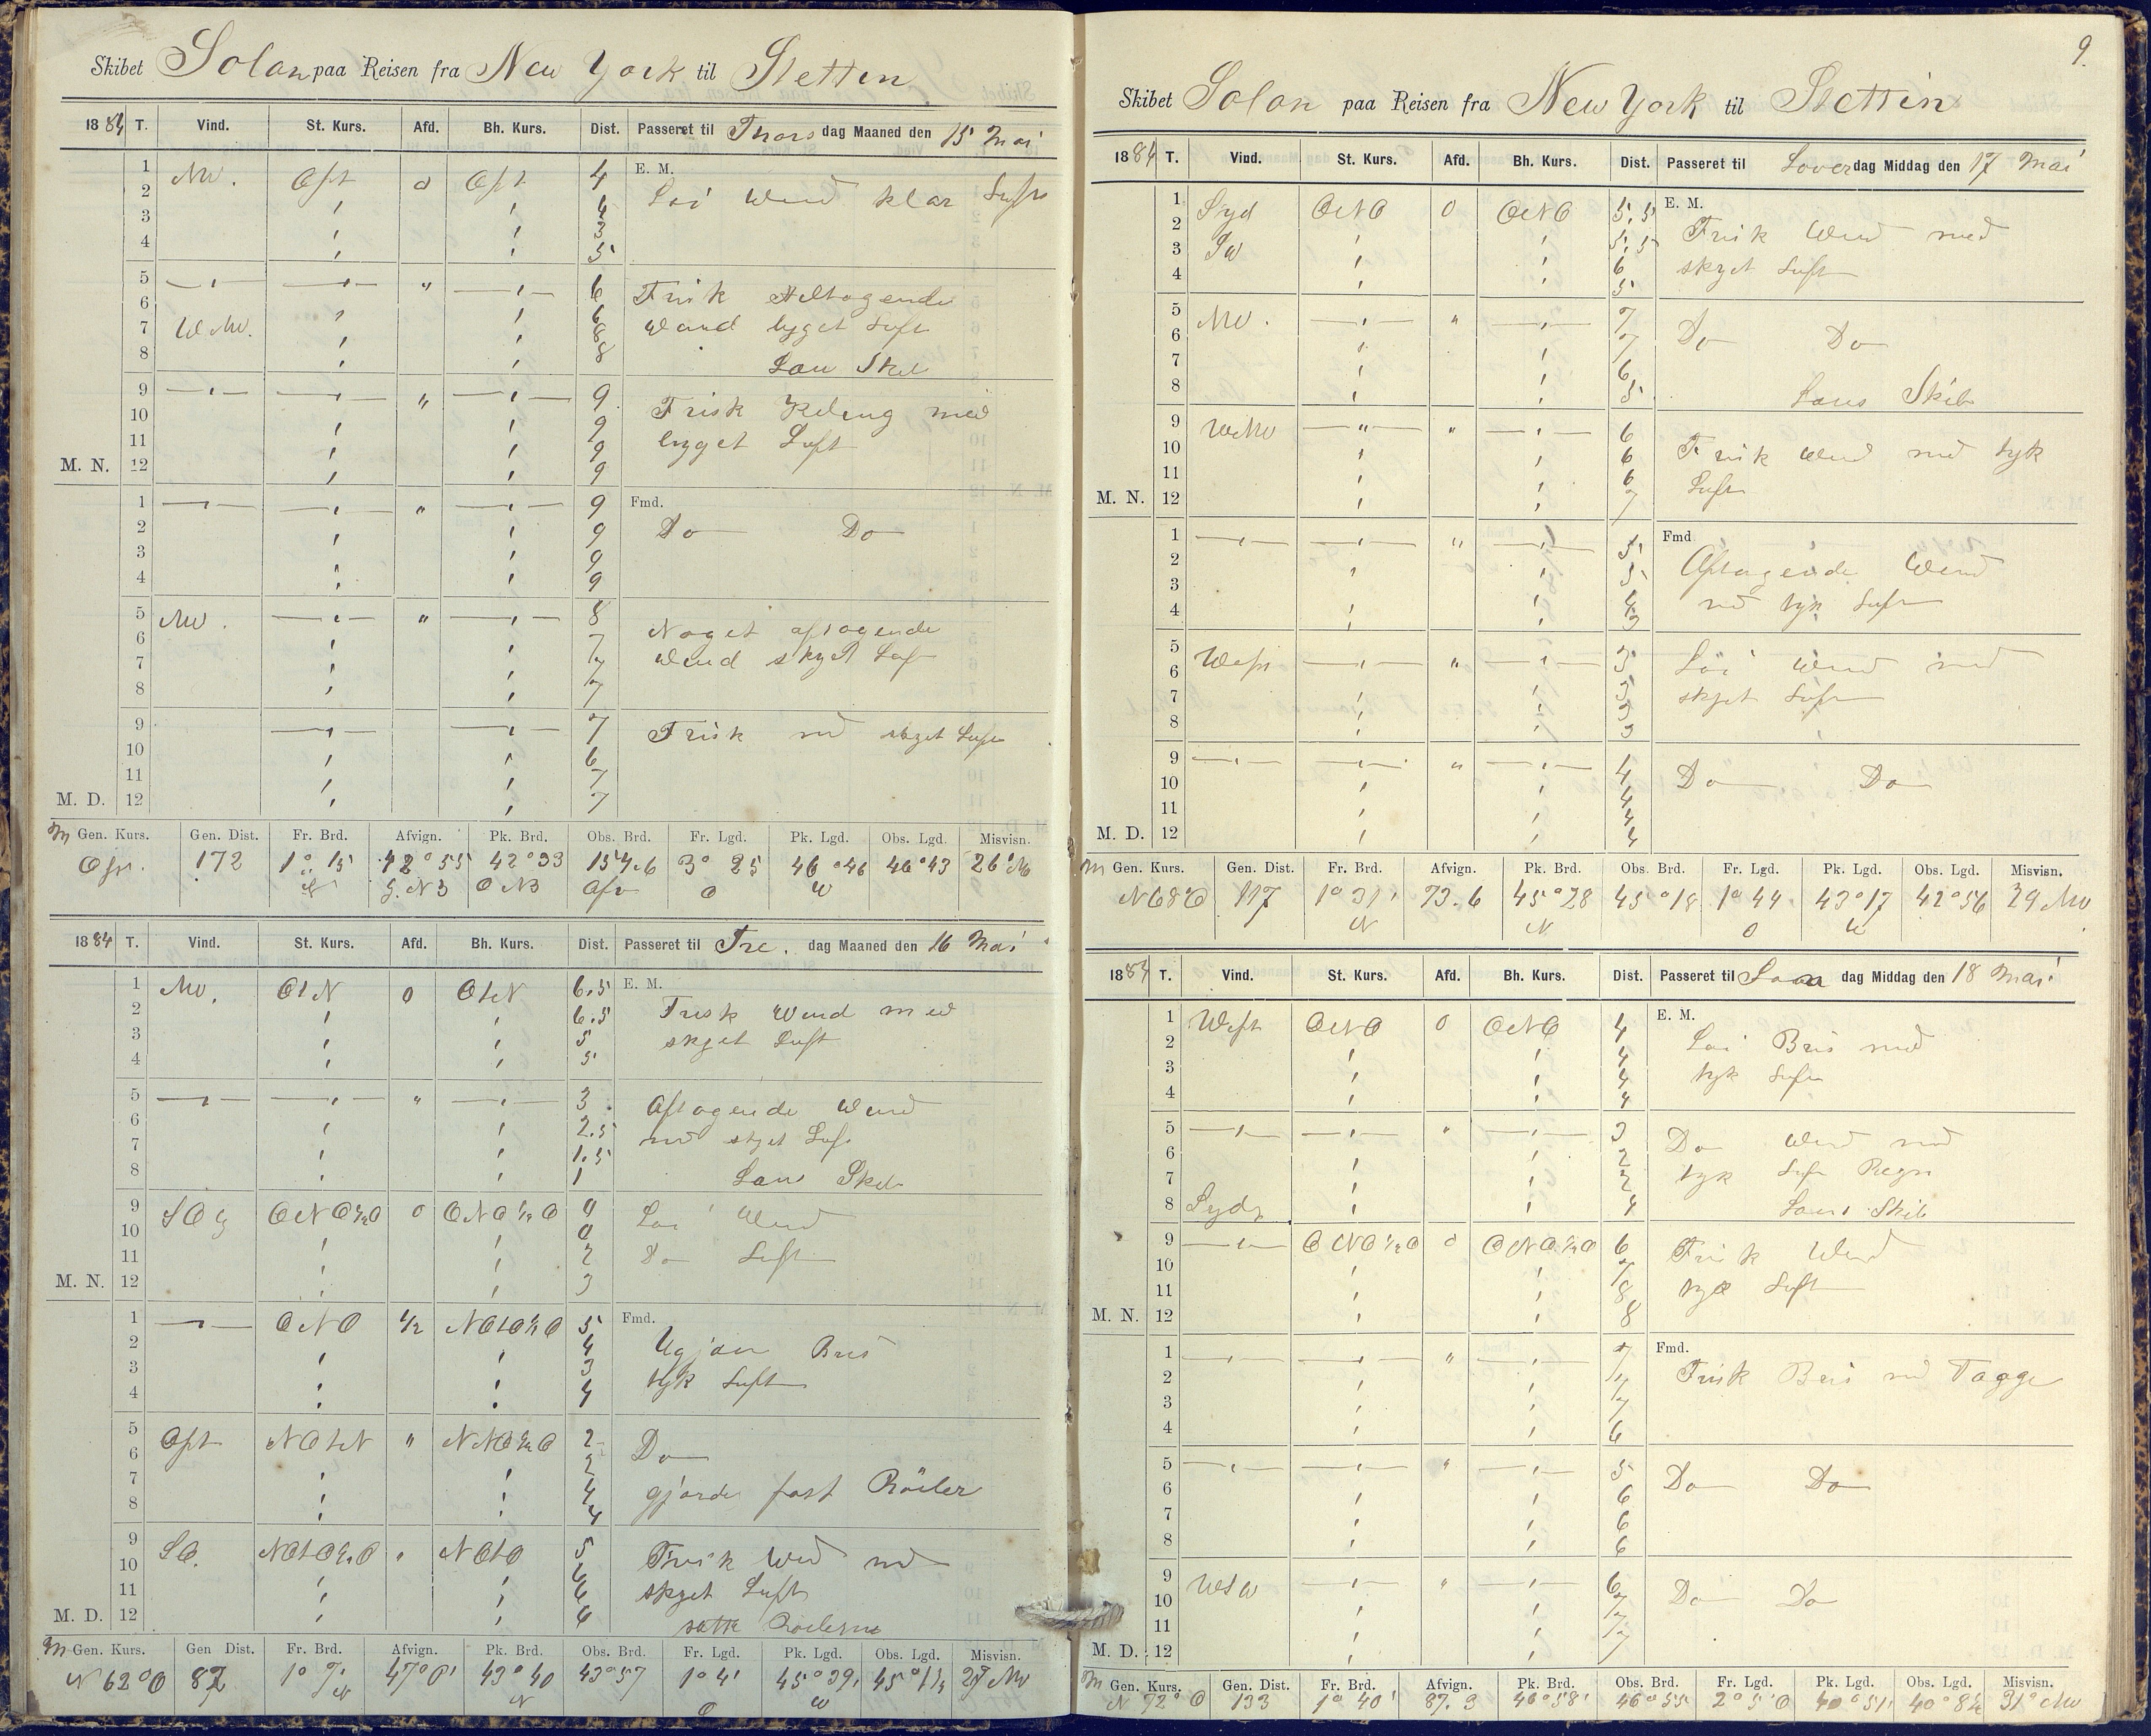 Skibet Solon paa Reisen fra New York til Stettin
1884 T. Vind. St. Kurs. Afd. Bh. Kurs. Dist. Passeret til Thorsdag Maaned den 15 Mai
1 NW. Ost 0 Ost 4 E. M.
2 4 Löi Wind klar Luft
3 3
4 5
5 6 Frisk Tiltagende
6 6 Wind bygget Luft
7 WNW. 8
8 8 Lens Skib
9 9 Frisk Keling med
10 9 bygget Luft
11 9
M. N. 12 9
1 9 Fmd.
2 9 Do Do
3 9
4 9
5 NW. 8 Noget aftagende
6 7 Wind skyet Luft
7 7
8 7
9 7 Frisk md skyet Luft
10 6
11 7
M. D. 12 7
Gen. Kurs. Gen. Dist. Fr. Brd. Afvign. Pk. Brd. Obs. Brd. Fr. Lgd. Pk. Lgd. Obs. Lgd. Misvisn.
Ost. 172 1° 15 42°55 42°33 154.6 3° 25 46°46 46°43 26°NW
1884 T. Vind. St. Kurs. Afd. Bh. Kurs. Dist. Passeret til Fre. dag Maaned den 16 Mai
1 NW. OtN 0 OtN 6.5 E. M.
2 6.5 Frisk Wind med
3 5 skyet Luft
4 5
5 3 Aftagende Wind
6 2.5 md skyet Luft
7 1.5
8 1 Lens Skib
9 SO ONO½O 0 ONO½O 0 Löi Wind
10 0 Do Luft
11 2
M. N. 12 3
1 ONO ½ NOtO½O 5 Fmd.
2 4 Ugjevn Bris
3 3 tyk Luft
4 4
5 Ost NOtN " NNO½O 2 Do
6 2
7 4 gjorde fast Röiler
8 4
9 SO. NOtO½O NOtO 5 Frisk Wind md
10 6 skyet Luft
11 6
M. D. 12 6 satte Röilerne
Gen. Kurs. Gen Dist. Fr. Brd. Afvign. Pk. Brd. Obs. Brd. Fr. Lgd. Pk. Lgd. Obs. Lgd. Misvisn.
N 62°O 87 1° 7' N 47°0' 43°40 N 43°57 1°4' O 45°39' W 45°1½ 27 NW
9.
Skibet Solon paa Reisen fra New York til Stettin
1884 T. Vind. St. Kurs. Afd. Bh. Kurs. Dist. Passeret til Loverdag Middag den 17 Mai
1 Syd ONO 0 ONO 5.5 E. M.
2 5.5 Frisk Wind med
3 SW 6 skyet Luft
4 5
5 NW. 7
6 7 Do Do
7 6
8 5 Lens Skib
9 WNW 6
10 6 Frisk Wind md tyk
11 6 Luft
M. N. 12 7
1 5 Fmd
2 5 Aftagende Wind
3 4 md tyk Luft
4 3
5 West 3 Löi Wind med
6 3 skyet Luft
7 3
8 3
9 4 Do Do
10 4
11 4
M. D. 12 4
Gen. Kurs. Gen. Dist. Fr. Brd. Afvign. Pk. Brd. Obs. Brd. Fr. Lgd. Pk. Lgd. Obs. Lgd. Misvisn.
N68O 117 1° 31' N 73.6 45°28 N 45°18 1°44 O 43°17 W 42°56 29 NW
1884 T. Vind. St. Kurs. Afd. Bh. Kurs. Dist. Passeret til Søn dag Middag den 18 Mai
1 West ONO 0 ONO 4 E. M.
2 4 Löi Bris med
3 4 tyk Luft
4 4
5 3 Do Wind md
6 2 tyk Luft Regn
7 2
8 Sydz 4 Lens Skib
9 ONO½O 0 ONO½O 6 Frisk Wind
10 7 tyk Luft
11 8
M. N. 12 8
1 7 Fmd.
2 7 Frisk Bris md Taage
3 7
4 6
5 5 Do Do
6 6
7 6
8 6
9 WSW 6
10 7 Do Do
11 7
M. D. 12 7
Gen. Kurs. Gen. Dist. Fr. Brd. Afvign. Pk. Brd. Obs. Brd. Fr. Lgd. Pk. Lgd. Obs. Lgd. Misvisn.
N 72° O 133 1° 40' 87.3 46°58' 46°55 2°5'O 40°51' 40°8½ 31°NW